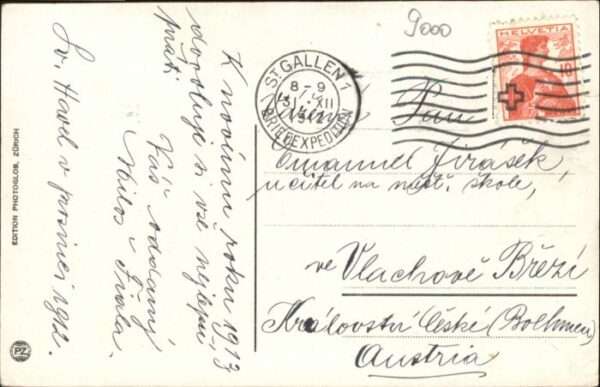 K novému roku 1913
dovoluje si vše nejlepší
přáti
Váš oddaný
Miloš Fiala.
Sv. Havel v prosinci 1912.
EDITION PHOTOGLOB, ZÜRICH
PZ
9000
HELVETIA
10
ST. GALLEN 1
8-9
31. XII
BRIEFEXPEDITION
Pan
Emanuel Jirásek,
učitel na měšť. škole,
ve
Vlachově Březí
Království České (Bœhmen)
Austria